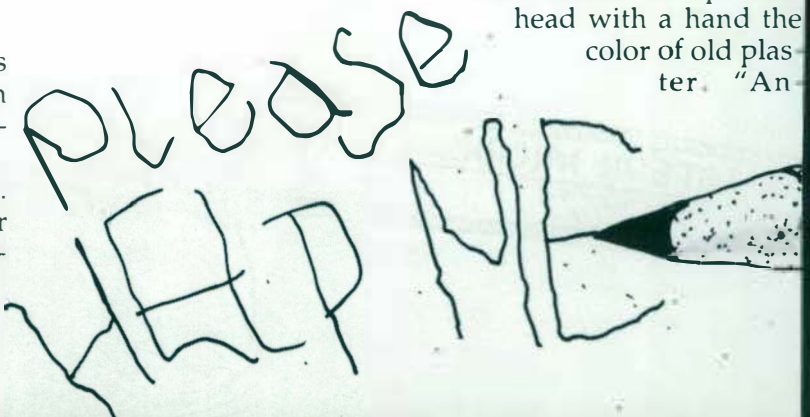 head with a hand the
color of old plas
ter. "An
please
HELP ME